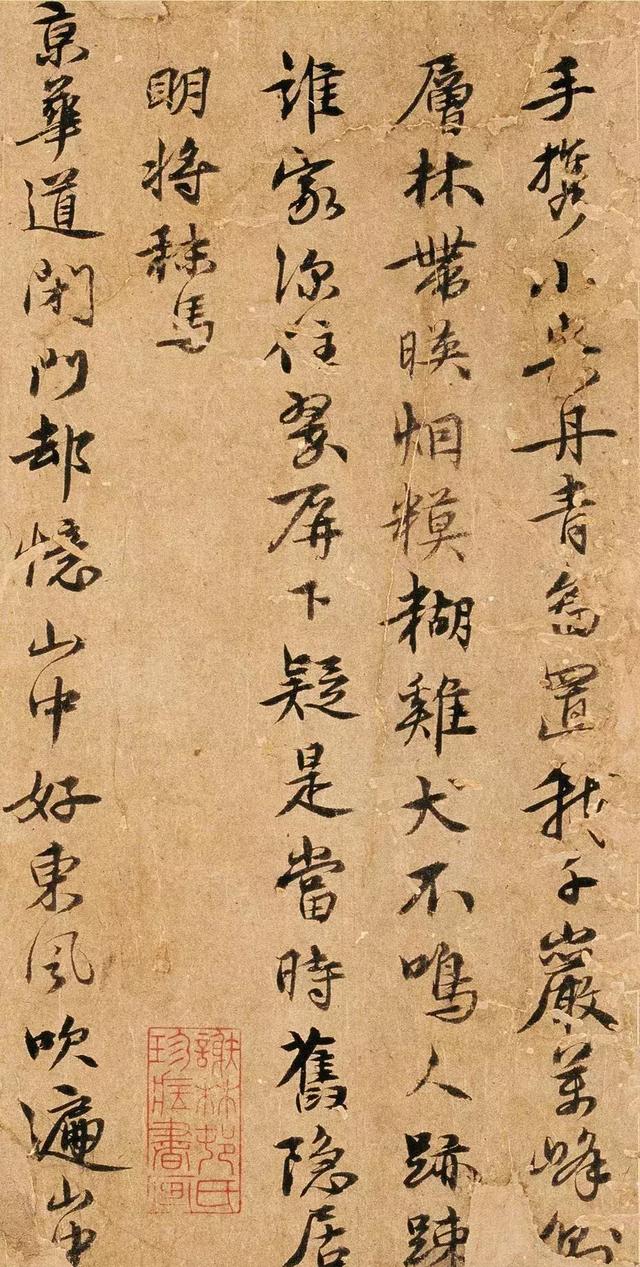 手攜小丹青置我千巖萬峰側
層林帶暎烟糢糊雞犬不鳴人跡疎
誰家深住翠屏下疑是當時舊隱居
明將秣馬
謝林邨氏
珍藏書画
京華道閉門却憶山中好東風吹遍山中